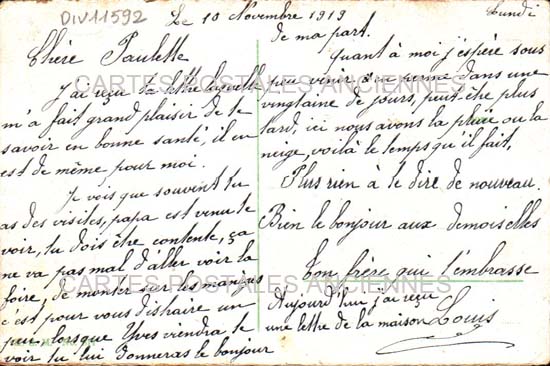 DIV11592
Le 10 Novembre 1919
Lundi
Chère Paulette
J'ai reçu ta lettre laquelle
m'a fait grand plaisir de te
savoir en bonne santé, il en
est de même pour moi.
Je vois que souvent tu
as des visites, papa est venu te
voir, tu dois être contente, ça
ne va pas mal d'aller voir la
foire, de monter sur les manèges
c'est pour vous distraire un
peu, lorsque Yves viendra te
voir tu lui donneras le bonjour
de ma part.
Quant à moi j'espère sous
peu venir en perme dans une
vingtaine de jours, peut-être plus
tard, ici nous avons la pluie ou la
neige, voilà le temps qu'il fait.
Plus rien à te dire de nouveau.
Bien le bonjour aux demoiselles
Ton frère qui t'embrasse
Louis
Aujourd'hui j'ai reçu
une lettre de la maison
CARTES POSTALES ANCIENNES
CARTES POSTALES ANCIENNES